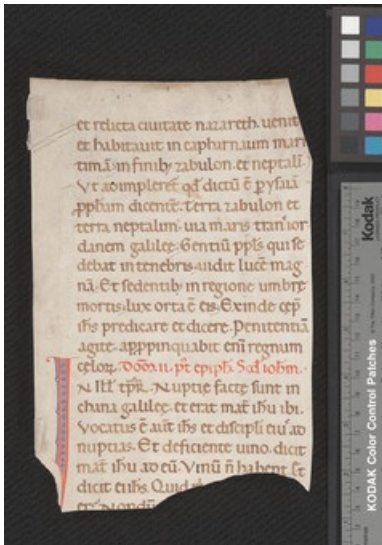 et relicta ciuitate nazareth. uenit
et habitauit in capharnaum mari
timā in finibꝫ zabulon. et neptalī
Vt adimpleret̄ qđ dictū ē p ysaiā
ꝓphām dicentē. terra zabulon et
terra neptalim. uia maris tranſ ior
danem galileę. Gentiū ppl̄s qui se
debat in tenebris. uidit lucē mag
nā. Et sedentibꝫ in regione umbrę
mortis. lux orta ē eis. Exinde cęp̄
ih̄s predicare et dicere. Penitentiā
agite. appropinquabit enī regnum
cęloꝝ. Dom̄ ii. p̄t epiph̄. Scd̄ ioh̄m.
IN ill̄ tp̄r. Nuptię factę sunt in
chana galileę. et erat mat̄ ih̄u ibi.
Vocatus ē aut̄ ih̄s et discipli eiuſ ad
nuptias. Et deficiente uino. dicit
mat̄ ih̄u ad eū. Vinū n̄ habent. Et
dicit ei ih̄s. Quid
et Nondū
Kodak
KODAK Color Control Patches